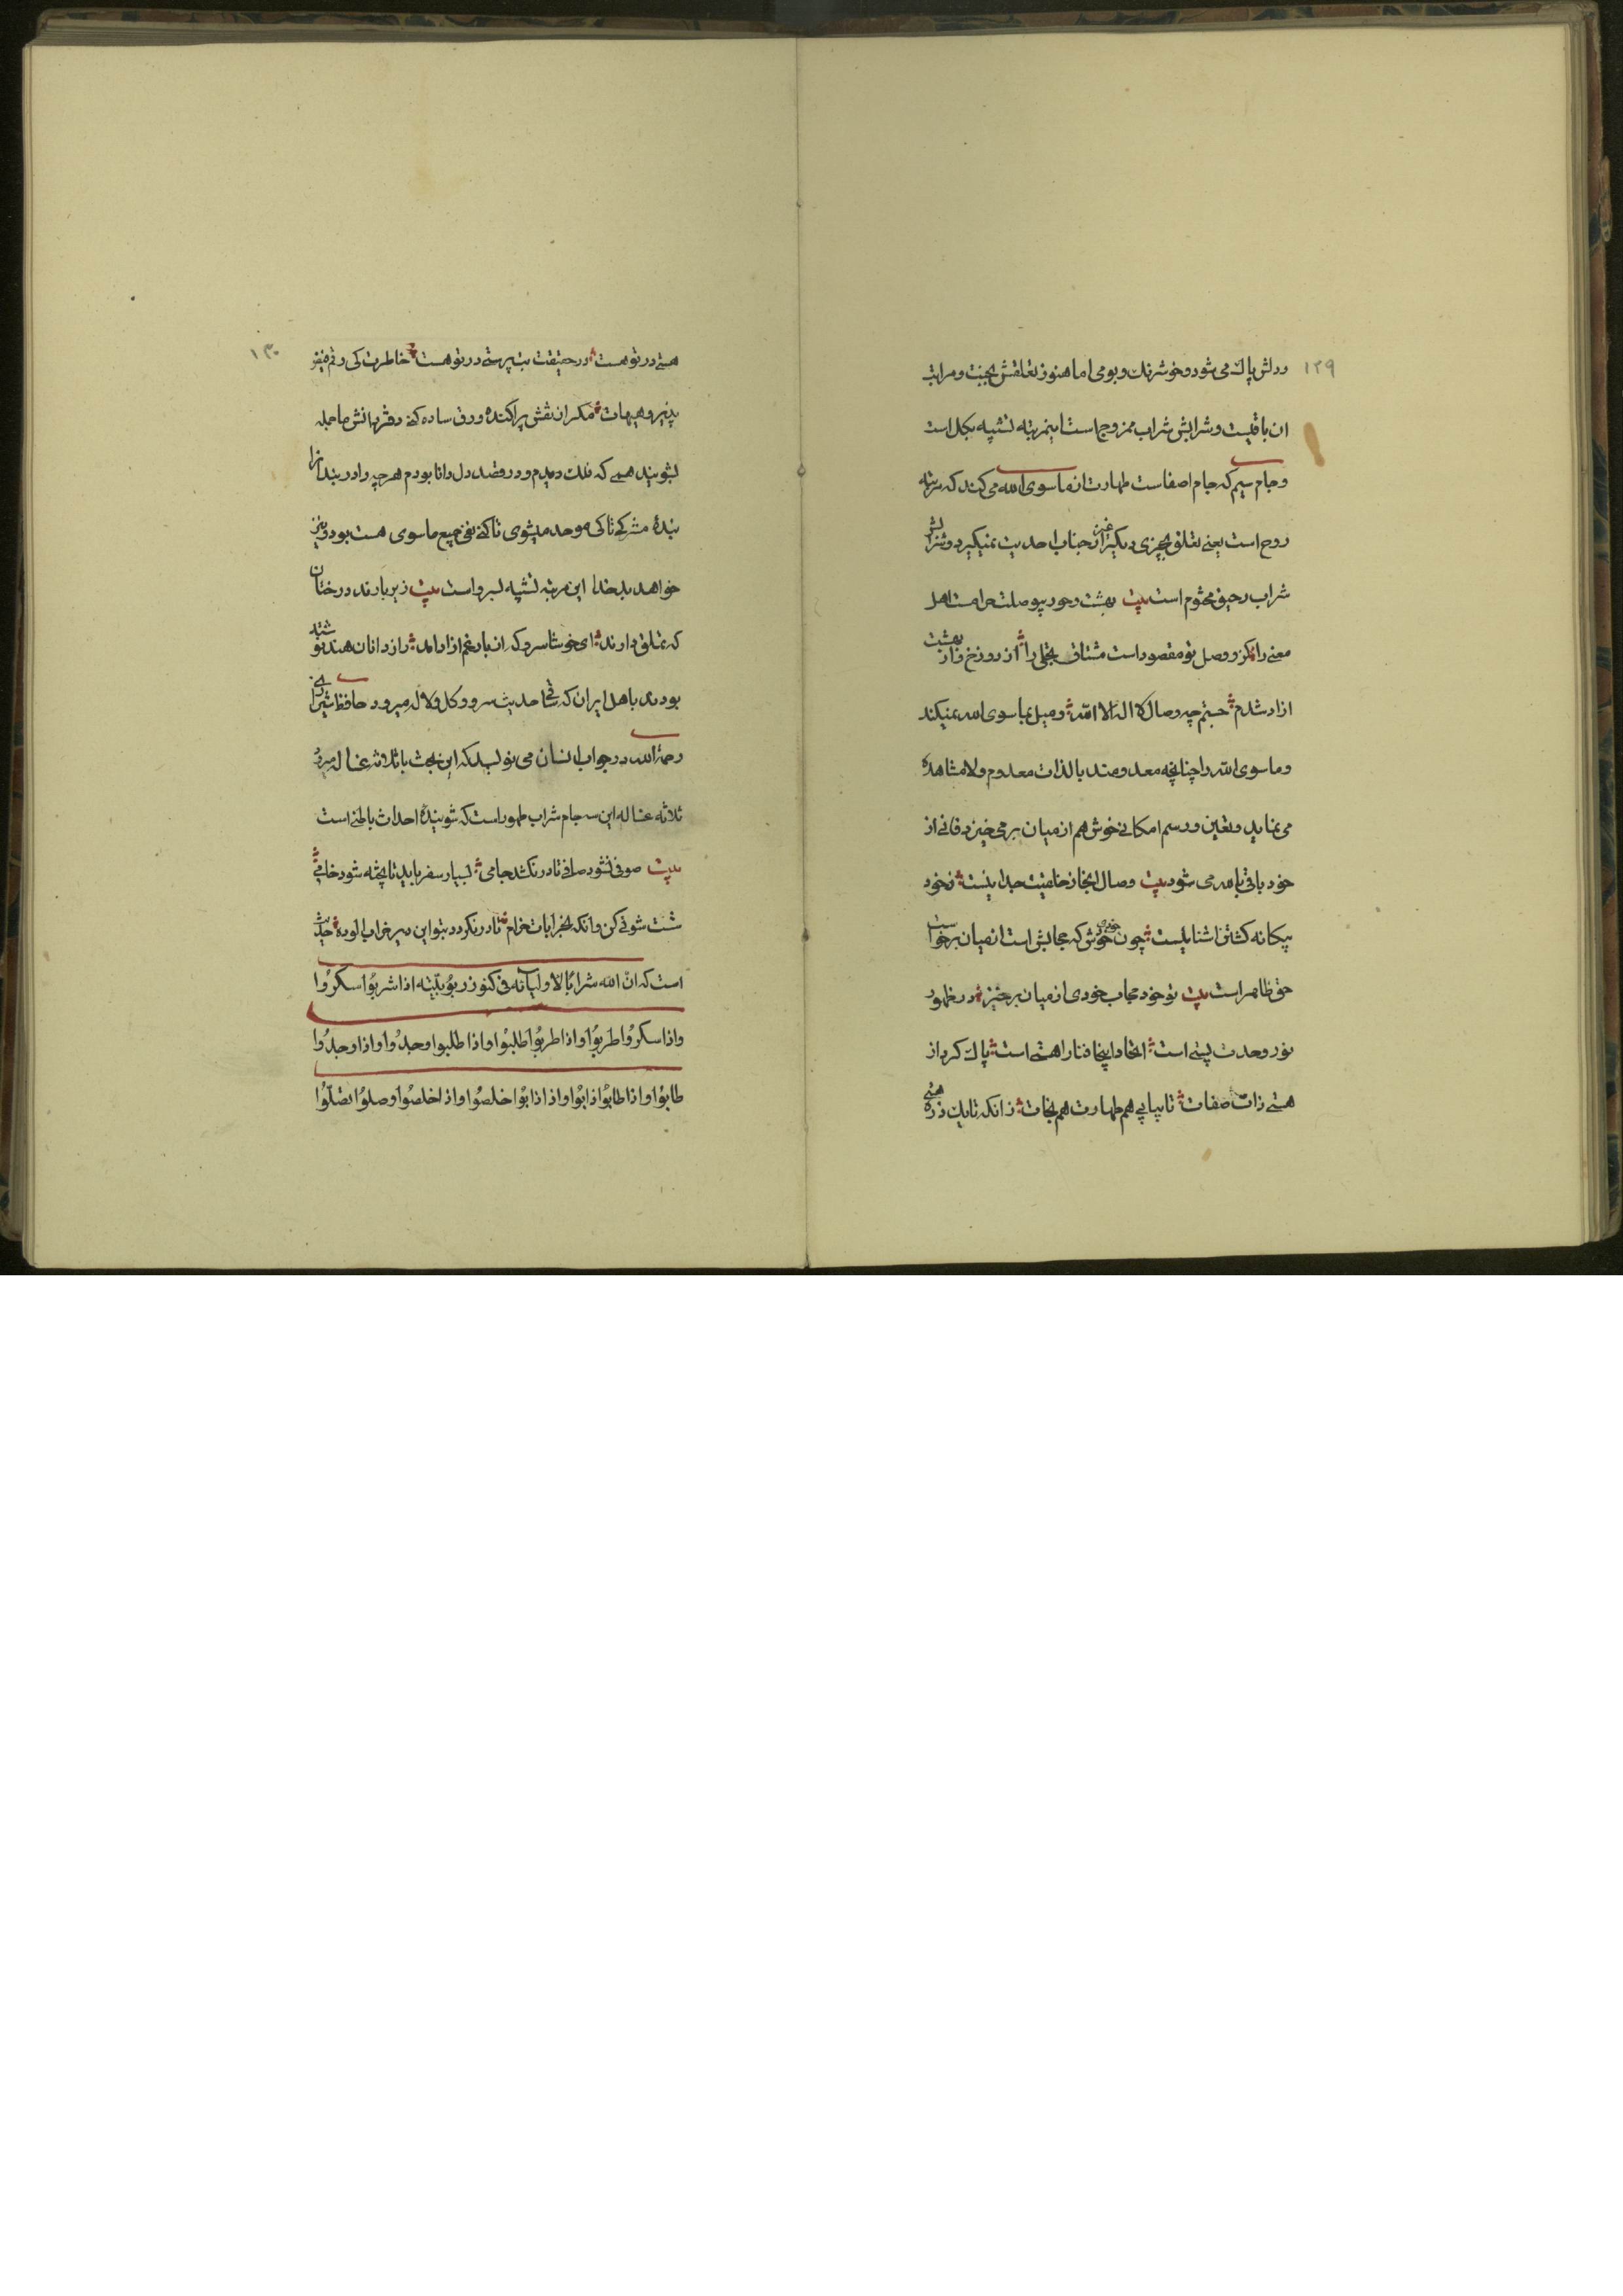 ۱۲۹
ودلش پاك می شود و خوشرنك و بومی اما هنوز تعلقش بجنت و مراتب
ان باقیست و شرابش شراب ممزوج است اینمرتبه تشبیه بكل است
و جام سیم كه جام اصفاست طهارت از ماسوی الله می كند كه مرتبه
روح است یعنی تعلق بچیزی دیگر غیر از جناب احدیت نمیگیرد و شرابش
شراب رحیق مختوم است بیت بهشت و حور بیوصلت حرامست اهل
معنی را كز و وصل تو مقصود است مشتاق تجلی را از دوزخ و از بهشت
ازاد شدم جستم چه وصال لا اله الا الله و میل بماسوی الله نمیكند
و ماسوی الله را چنانچه معدومند بالذات معدوم و لا مشاهده
می نماید و تعین و رسم امكانی خوش هم از میان بر می خیزد فانی از
خود باقی بالله می شود بیت وصال اینجا ز خلقیت جداییست ز خود
بیكانه كشتن اشناییست چون خودی خوش كه حجابش است از میان برخواست
حق ظاهر است بیت تو خود حجاب خودی از میان برخیز در ظهور
نور وحدت پستی است اتحاد اینجا فنا را هستی است پاك كرد از
هستی ذات صفات تا بیابی هم طهارت هم نجات زانكه تا یك ذره هستی
۱۳۰
هستی در تو هست در حقیقت بت پرستی در تو هست خاطرت كی رقم فیض
پذیرد هیهات مكر از نقش پراكنده ورق ساده كنی دفتر دانش ما جمله
بشویید همی كه فلك دیدم و در قصد دل دانا بود هر چه را در بند انرا
بندهٔ مشركی تا كی موحد میشوی تا كنی نفی جمیع ماسوی هست بود و نیز
خواهد بد خدا این مرتبه تشبیه بسرو است بیت زیر بارند درختان
كه تعلق دارند ای خوشا سرو كه از بار غم ازاد امد راز دانان هند نوشته
بودند باهل ایران كه ساقی حدیث سرو و كل و لاله میرود حافظ شیرازی
رحمة الله در جواب ایشان می نویسد كه این بحث با ثلاثه غساله میرود
ثلاثه غساله این سه جام شراب طهور است كه شویندهٔ احداث باطنی است
بیت صوفی نشود صافی تا در نكشد جامی بسیار سفر باید تا پخته شود خامی
شست شوئی كن وانكه بخرابات خرام تا نكردد ز تو این دیر خراب الوده حدیث
است كه ان الله شراباً لاولیائه فی كنوز ربوبیّته اذا شربُوا سكرُوا
واذا سكرُوا طربُوا واذا طربُوا طلبُوا واذا طلبوا وجدُوا واذا وجدُوا
طابُوا واذا طابُوا ذابُوا واذا ذابُوا خلصُوا واذا خلصُوا وصلُوا